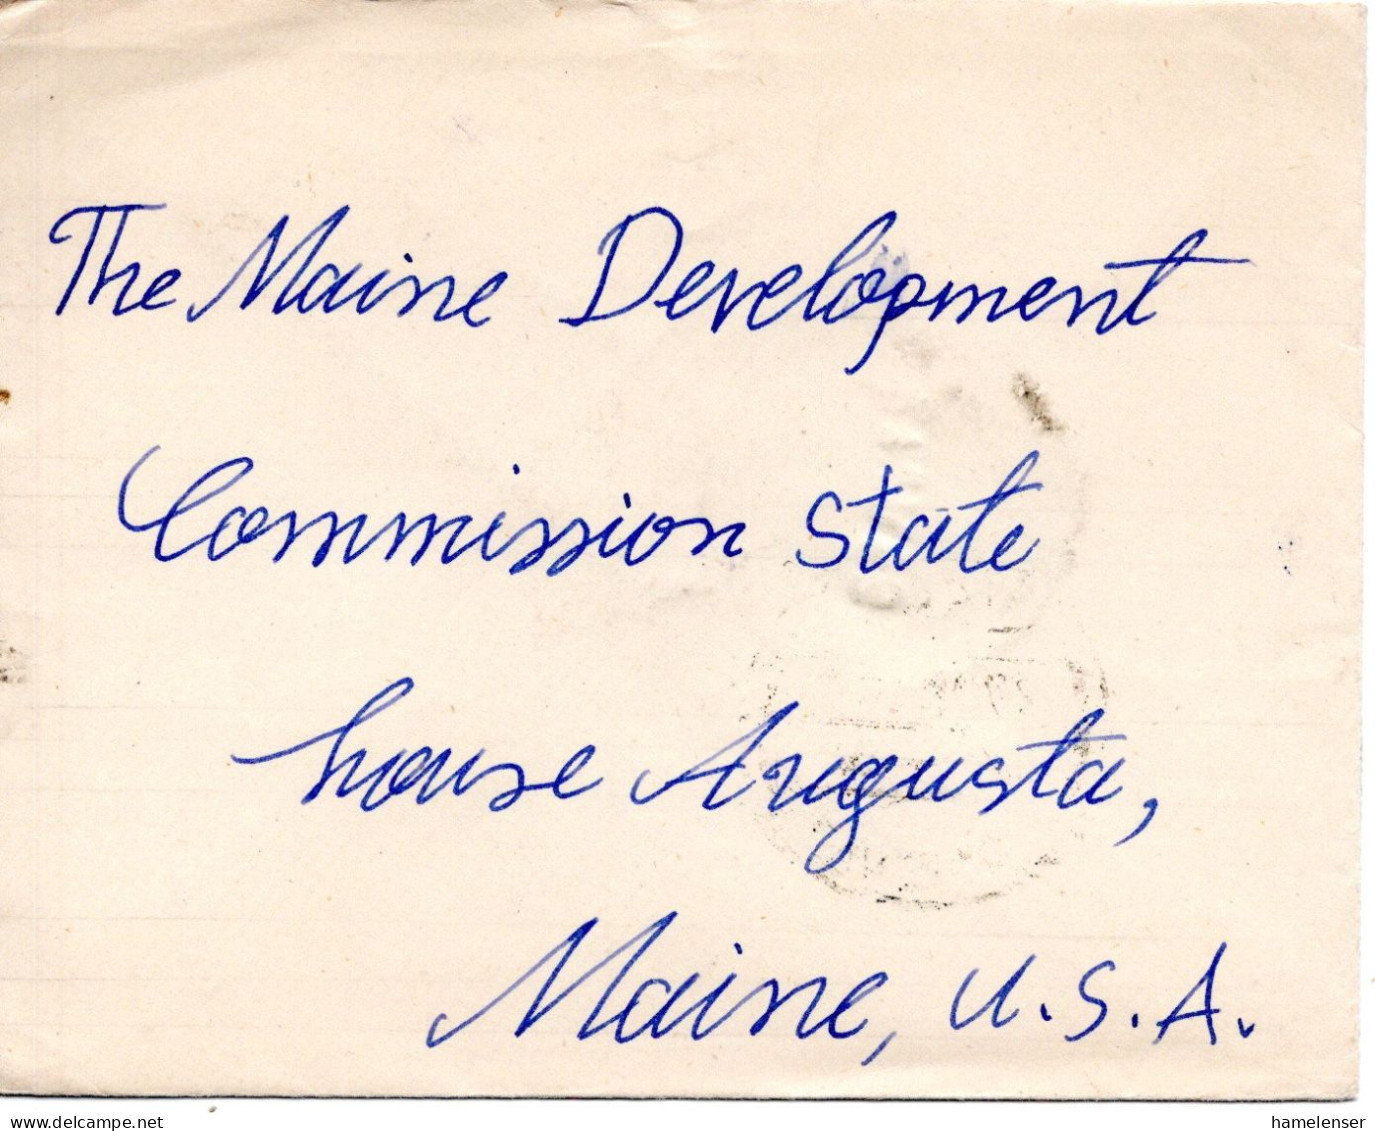 The Maine Development
Commission State
house Augusta,
Maine, U.S.A.
delcampe.net
hamelenser